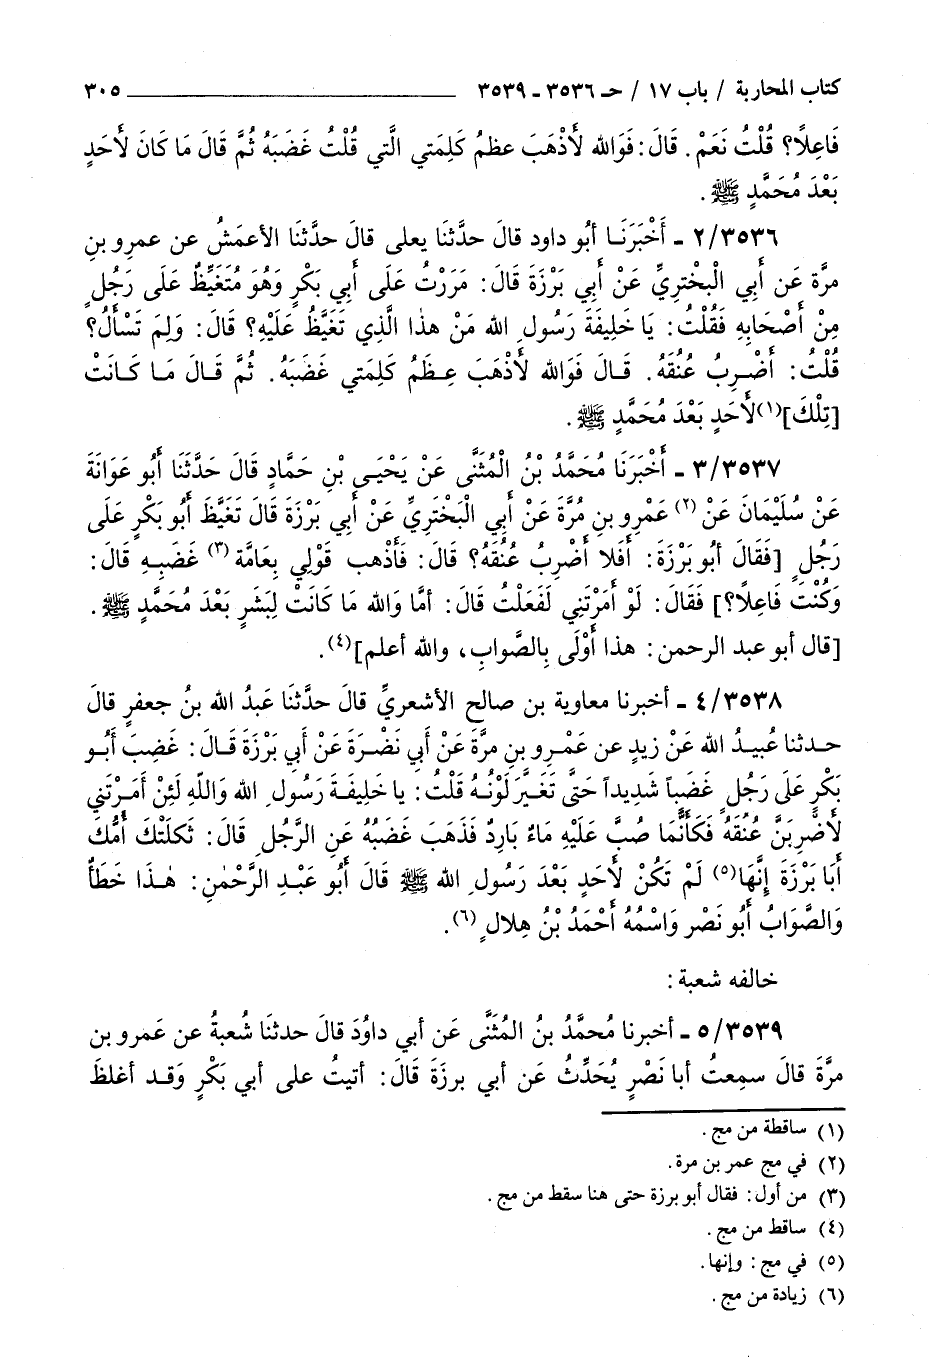 كتاب المحاربة / باب ١٧ / حـ ٣٥٣٦ ـ ٣٥٣٩ ٣٠٥
فَاعِلًا؟ قُلْتُ نَعَمْ. قَالَ: فَوَالله لَأَذْهَبَ عظمُ كَلِمَتي الَّتي قُلْتُ غَضَبَهُ ثُمَّ قَالَ مَا كَانَ لأَحَدٍ
بَعْدَ مُحَمَّدٍ ﷺ.
٢/٣٥٣٦ ـ أَخْبَرَنَا أبُو داود قالَ حدَّثنَا يعلى قالَ حدَّثنَا الأعمَشُ عن عمرو بنِ
مرَّة عَن أَبي الْبخْتريِّ عَنْ أَبي بَرْزَةَ قَالَ: مَرَرْتُ عَلَى أَبي بَكْرٍ وَهُوَ مُتَغَيِّظٌ عَلَى رَجُلٍ
مِنْ أَصْحَابِهِ فَقُلْتُ: يَا خَلِيفَةَ رَسُولِ الله مَنْ هذَا الَّذِي تَغَيَّظُ عَلَيْهِ؟ قَالَ: وَلِمَ تَسْأَلُ؟
قُلْتُ: أَضْرِبُ عُنُقَهُ. قَالَ فَوَالله لأَذْهَبَ عِظَمُ كَلِمَتي غَضَبَهُ. ثُمَّ قَالَ مَا كَانَتْ
[تِلْكَ](١) لأَحَدٍ بَعْدَ مُحَمَّدٍ ﷺ.
٣/٣٥٣٧ ـ أَخْبَرَنَا مُحَمَّدُ بْنُ الْمُثَنَّى عَنْ يَحْيَى بْنِ حَمَّادٍ قَالَ حَدَّثَنَا أَبُو عَوَانَةَ
عَنْ سُلَيْمَانَ عَنْ (٢) عَمْرِو بنِ مُرَّةَ عَنْ أَبِي الْبَخْتَرِيِّ عَنْ أَبي بَرْزَةَ قَالَ تَغَيَّظَ أَبُو بَكْرٍ عَلَى
رَجُلٍ [فَقَالَ أبُو بَرْزَةَ: أَفَلا أَضْرِبُ عُنُقَهُ؟ قَالَ: فَأَذْهب قَوْلي بِعَامَّة (٣) غَضَبِهِ قَالَ:
وَكُنْتَ فَاعِلاً؟] فَقَالَ: لَوْ أَمَرْتَنِي لَفَعَلْتُ قَالَ: أمَّا وَالله مَا كَانَتْ لِبَشَرٍ بَعْدَ مُحَمَّدٍ ﷺ.
[قال أبو عبد الرحمن: هذا أَوْلَى بِالصَّوابِ، والله أعلم](٤).
٤/٣٥٣٨ ـ أخبرنا معاوية بن صالح الأشعريِّ قالَ حدَّثنَا عَبدُ الله بنُ جعفرٍ قالَ
حدثنا عُبيدُ الله عَنْ زيدٍ عن عَمْرِو بنِ مرَّةَ عَنْ أَبي نَضْرَةَ عَنْ أَبي بَرْزَةَ قَالَ: غَضِبَ أَبُو
بَكْرٍ عَلَى رَجُلٍ غَضَباً شَدِيداً حَتَّى تَغَيَّرَ لَوْنُهُ قُلْتُ: يا خَلِيفَةَ رَسُولِ الله وَاللَّهِ لَئِنْ أَمَرْتَنِي
لأَضْرِبَنَّ عُنُقَهُ فَكَأَنَّمَا صُبَّ عَلَيْهِ مَاءٌ بَارِدٌ فَذَهَبَ غَضَبُهُ عَنِ الرَّجُلِ قَالَ: ثَكِلَتْكَ أُمُّكَ
أَبَا بَرْزَةَ إِنَّهَا(٥) لَمْ تَكُنْ لأَحَدٍ بَعْدَ رَسُولِ الله ﷺ قَالَ أَبُو عَبْدِ الرَّحْمٰنِ: هٰذَا خَطَأٌ
وَالصَّوَابُ أَبُو نَصْرٍ وَاسْمُهُ أَحْمَدُ بْنُ هِلالٍ (٦).
خالفه شعبة:
٥/٣٥٣٩ ـ أخبرنا مُحمَّدُ بنُ المُثنَّى عَن أبي داوُدَ قالَ حدثنَا شُعبةُ عن عَمرو بن
مرَّةَ قالَ سمِعتُ أبا نَصْرٍ يُحَدِّثُ عَن أبي برزَةَ قَالَ: أتيتُ على أبي بَكْرٍ وَقد أغلظَ
(١) ساقطة من مج.
(٢) في مج عمر بن مرة.
(٣) من أول: فقال أبو برزة حتى هنا سقط من مج.
(٤) ساقط من مج.
(٥) في مج: وإنها.
(٦) زيادة من مج.